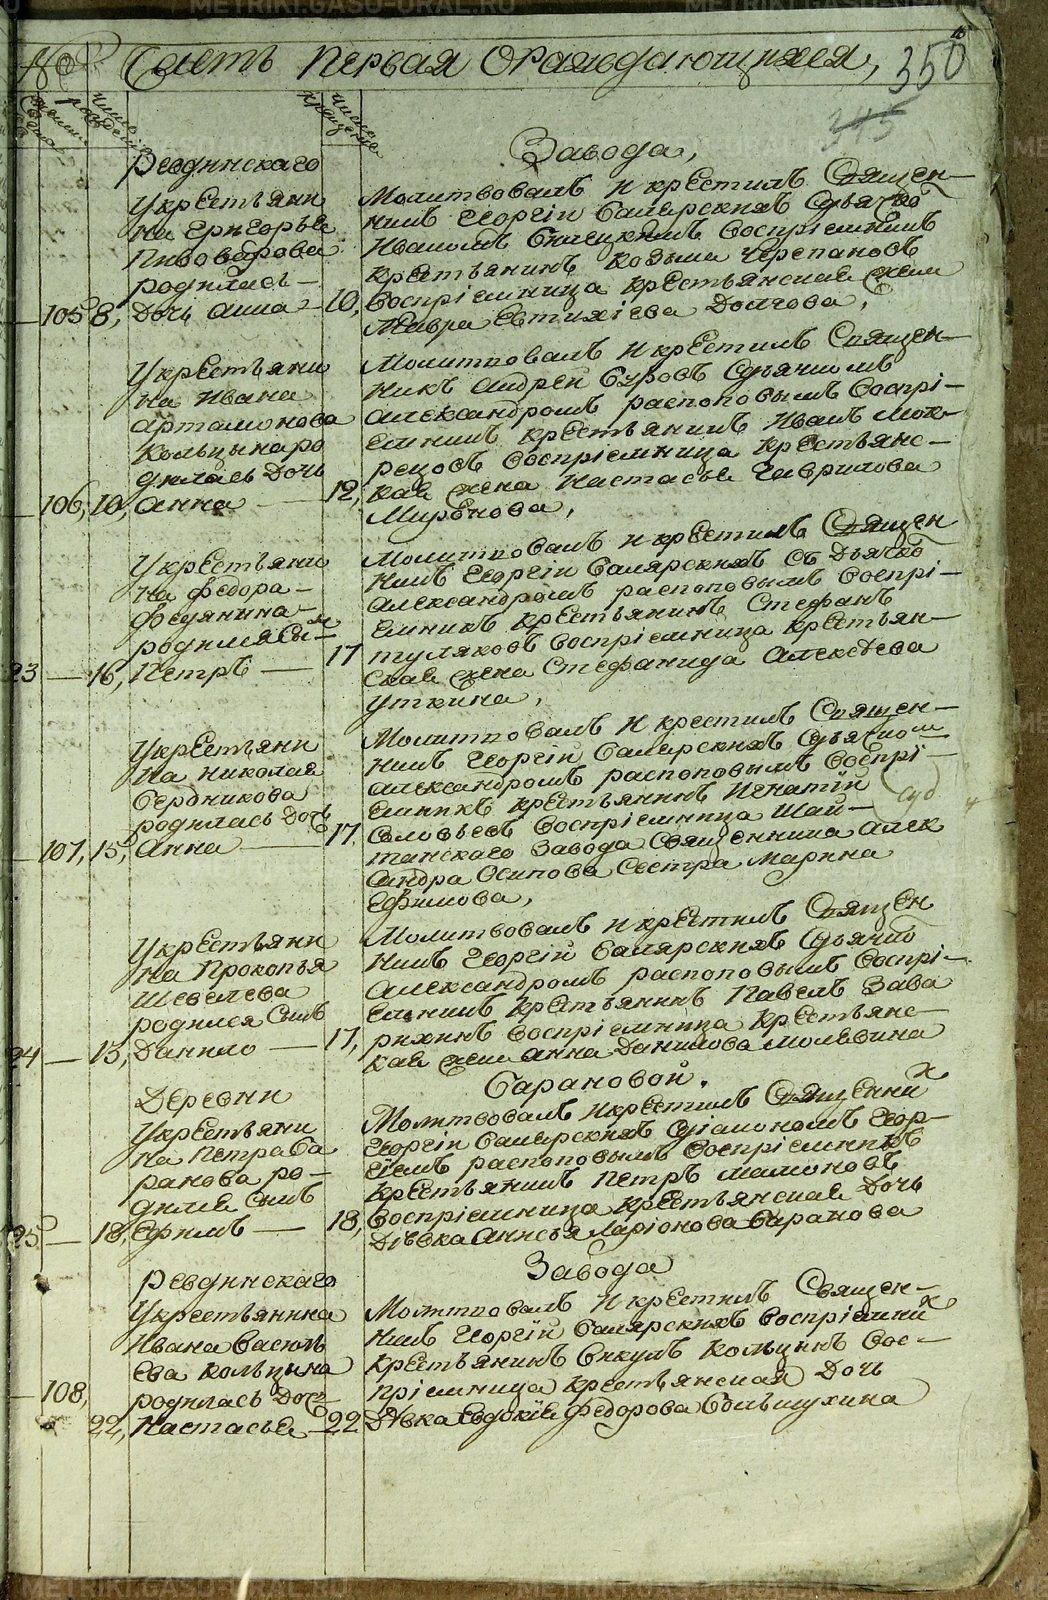 METRIKI.GASU-URAL.RU
Часть Первая Ораждающихся,
350
345
число рождения
число крещения
Завода,
Ревдинскаго
Укрестьяни
на Григорья
Пивоварова
родилась
105 8, Дочь Анна 10,
Молитвовалъ и крестилъ Священ-
никъ Георгiи Салярскихъ Сдьячко
Воспрiемникъ
крестьянинъ Козьма Черепановъ
Воспрiемница крестьянская жена
Мавра Евтихiева Долгова,
Укрестьяни
на Ивана
Артамонова
Кольцына ро
дилась Дочь
106, 10, Анна 12,
Молитвовалъ и крестилъ Священ-
никъ Андрей Буровъ Сдьячкомъ
Александромъ распоповымъ Воспрi-
емникъ крестьянинъ Иванъ Мок-
рецовъ Воспрiемница крестьянс-
кая жена Настасья Гаврилова
Миронова,
Укрестьяни
на Федора
Федянина
родился Сынъ
23 16, Петръ 17
Молитвовалъ и крестилъ Священ
никъ Георгiи Салярскихъ съ Дьячко
Александромъ распоповымъ Воспрi-
емникъ крестьянинъ Стефанъ
туляковъ Воспрiемница крестьян-
ская жена Стефанида Алексѣева
Уткина,
Укрестьяни
на Николая
Сердникова
родилась Дочь
107, 15, Анна 17,
Молитвовалъ и крестилъ Священ-
никъ Георгiи Салярскихъ Сдьячком
Александромъ распоповымъ Воспрi-
емникъ крестьянинъ Игнатiи
Соловьевъ Воспрiемница Шай-
танскаго Завода Священника Алек
сандра Осипова Сестра Марина
Ефимова,
Укрестьяни
на Прокопья
Шевелева
родился Сынъ
24 15, Данило 17,
Молитвовалъ и крестилъ Священ
никъ Георгiй Салярскихъ Сдьячко
Александромъ распоповымъ Воспрi-
емникъ Крестьянинъ Павелъ Зава
рихинъ Воспрiемница Крестьянс-
кая жена Анна Данилова Мольвина
Деревни
Барановой.
Укрестьяни
на Петра Ба
ранова ро-
дился Сынъ
25 18, Ефимъ 18,
Молитвовалъ и крестилъ Священник
Георгiи Салярскихъ Сдiакономъ Геор-
гiемъ распоповымъ Воспрiемникъ
крестьянинъ Петръ Мамоновъ
Воспрiемница крестьянская Дочь
Дѣвка Анисья Ларiонова Баранова
Ревдинскаго
Завода
Укрестьянина
Ивана Василь
ева Кольцына
108, родилась Дочь
22, Настасья 22
Молитвовалъ и крестилъ Священ-
никъ Георгiи Салярскихъ Воспрiемник
крестьянинъ Викулъ Кольцынъ Вос-
прiемница крестьянская Дочь
Дѣвка Евдокiя Федорова Большухина
METRIKI.GASU-URAL.RU